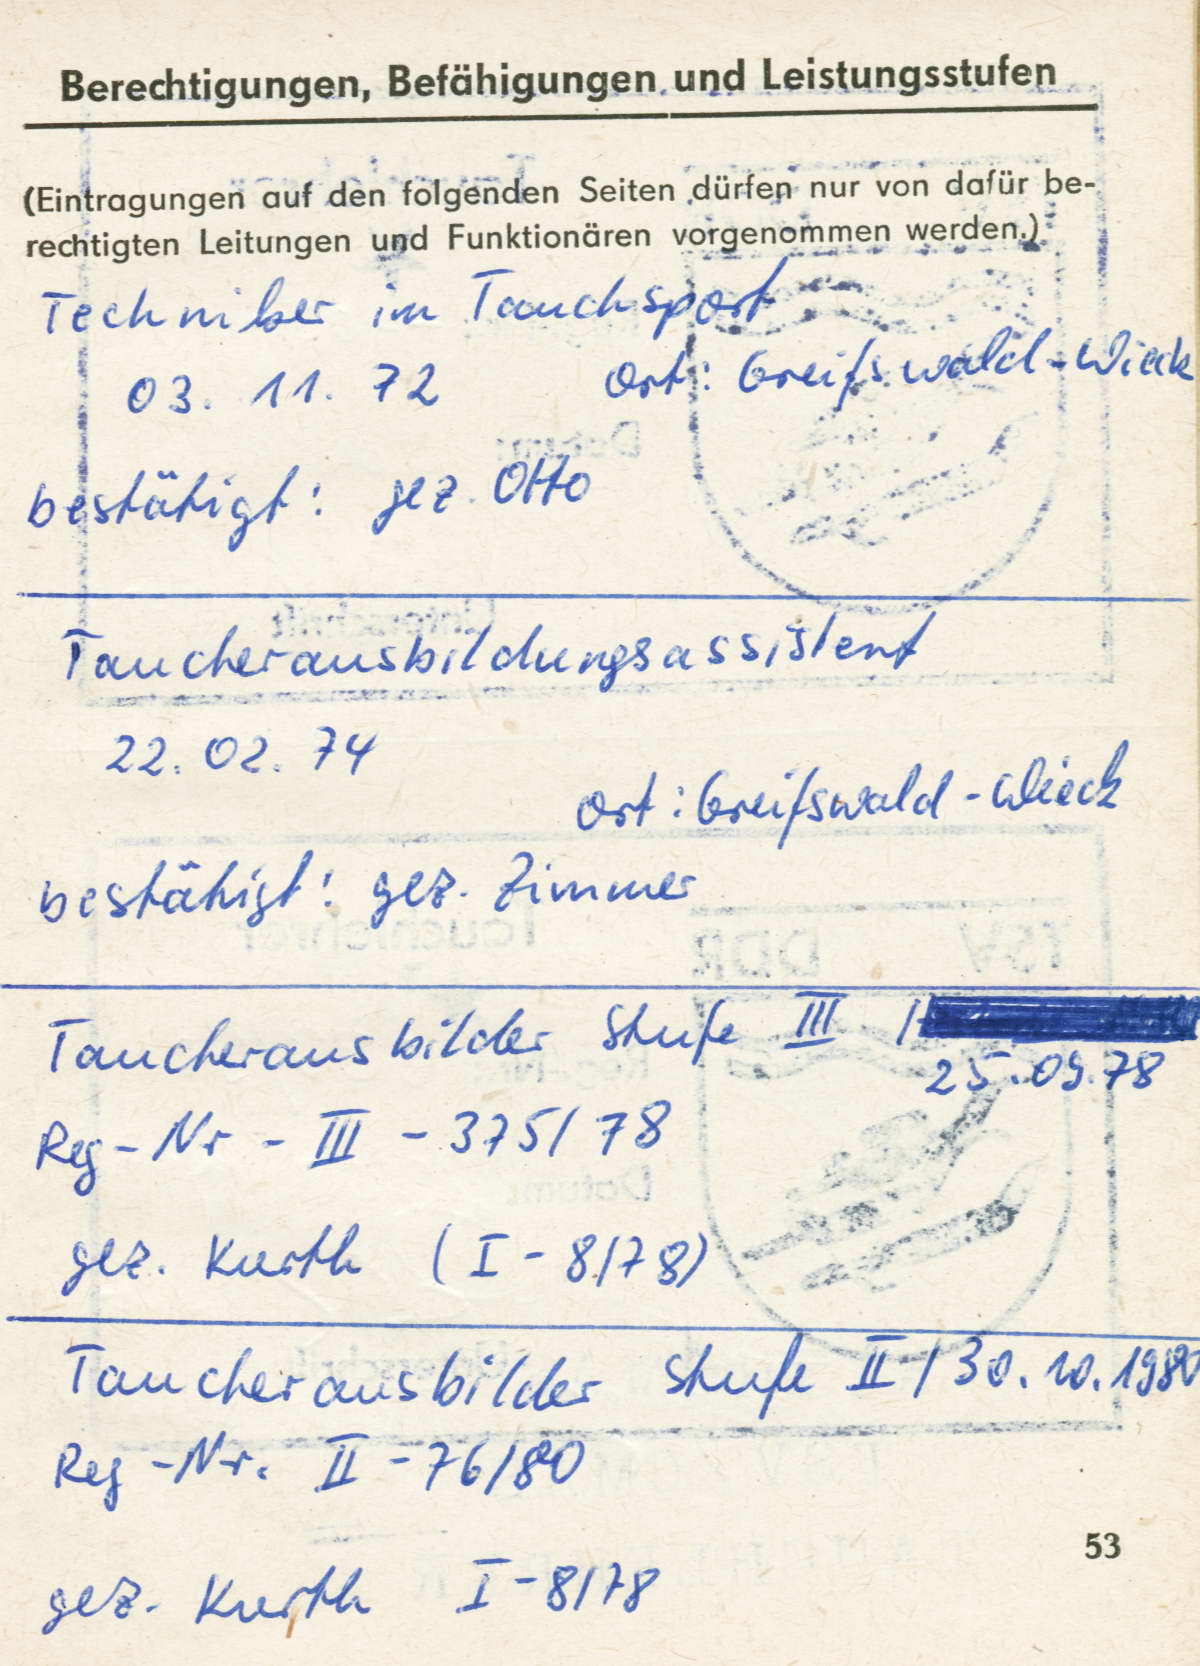 Berechtigungen, Befähigungen und Leistungsstufen
(Eintragungen auf den folgenden Seiten dürfen nur von dafür be-
rechtigten Leitungen und Funktionären vorgenommen werden.)
Techniker im Tauchsport
03. 11. 72 Ort: Greifswald-Wieck
bestätigt: gez. Otto
Taucherausbildungsassistent
22. 02. 74
Ort: Greifswald-Wieck
bestätigt: gez. Zimmer
Taucherausbilder Stufe III /
25.09.78
Reg-Nr - III - 375/78
gez. Kurth (I-8/78)
Taucherausbilder Stufe II / 30.10.1980
Reg-Nr. II-76/80
53
gez. Kurth I-8/78